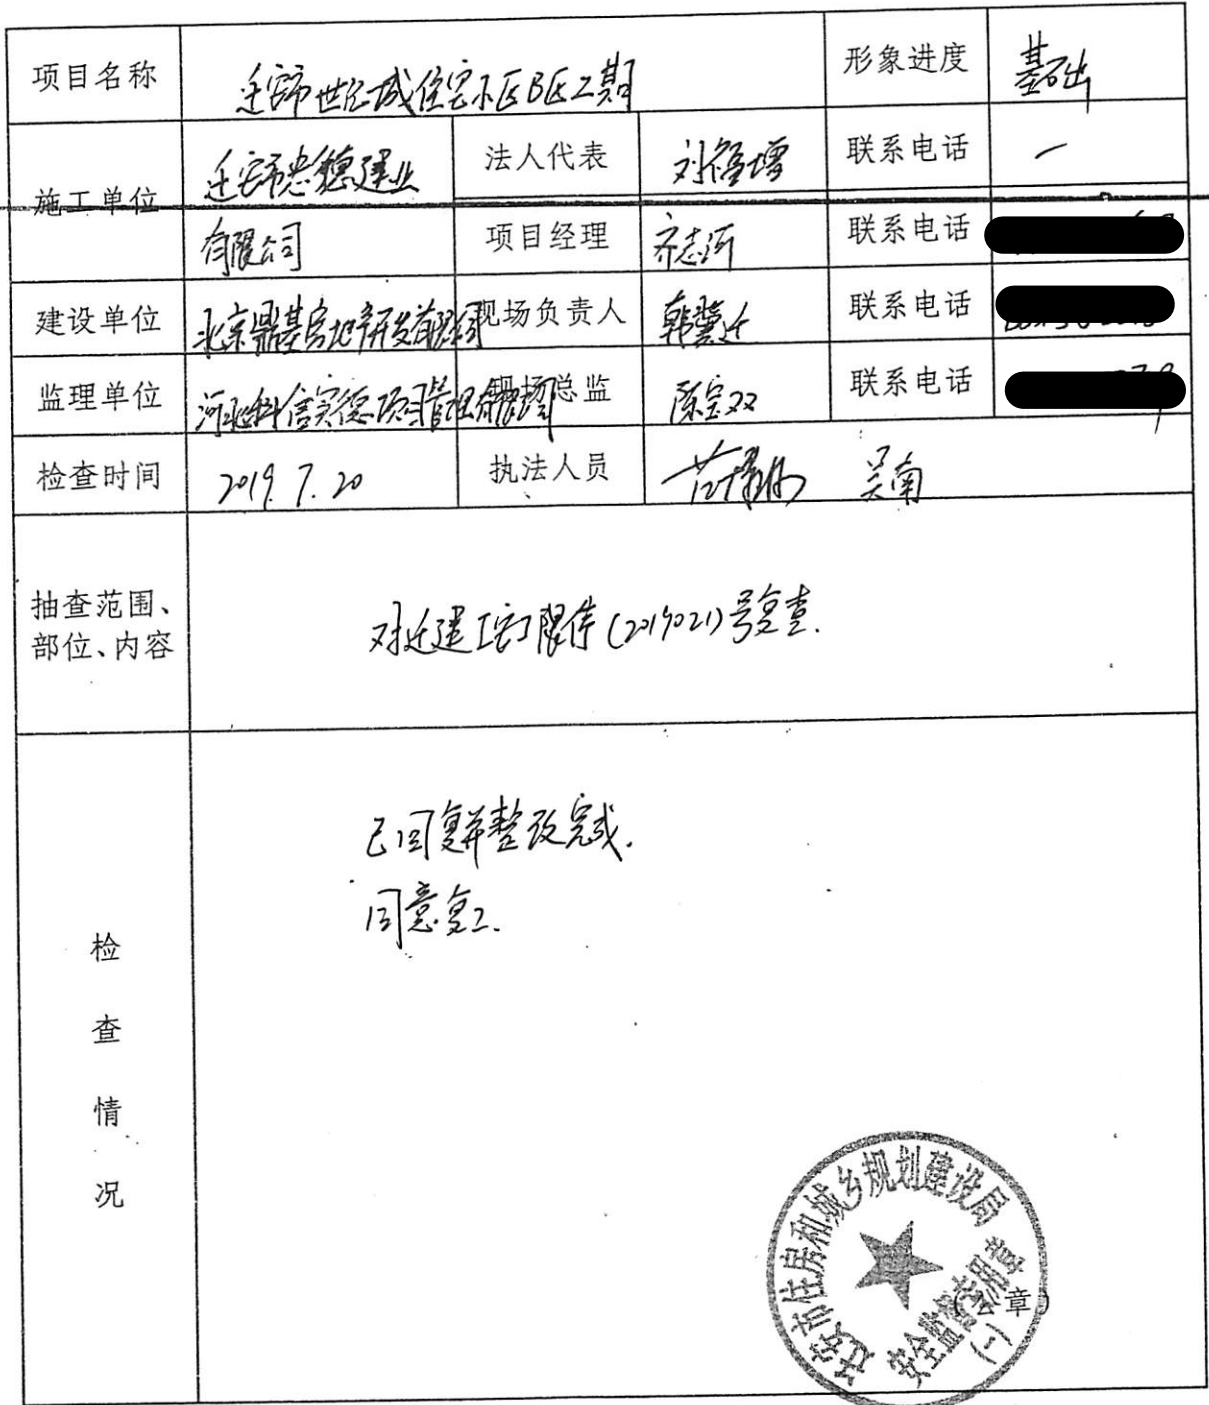 项目名称 迁安市世纪城住宅小区B区二期 形象进度 基础
施工单位 迁安市忠德建业 法人代表 刘福增 联系电话 一
有限公司 项目经理 齐志河 联系电话
建设单位 北京鼎基房地产开发有限公司 现场负责人 韩冀迁 联系电话
监理单位 河北科信实德项目管理有限公司 现场总监 陈宝双 联系电话
检查时间 2019.7.20 执法人员 吴南
抽查范围、
部位、内容
对迁建工安限停(2019021)号复查.
已回复并整改完成.
同意复工.
检
查
情
况
迁安市住房和城乡规划建设局
安全监督专用章
(一)
章)